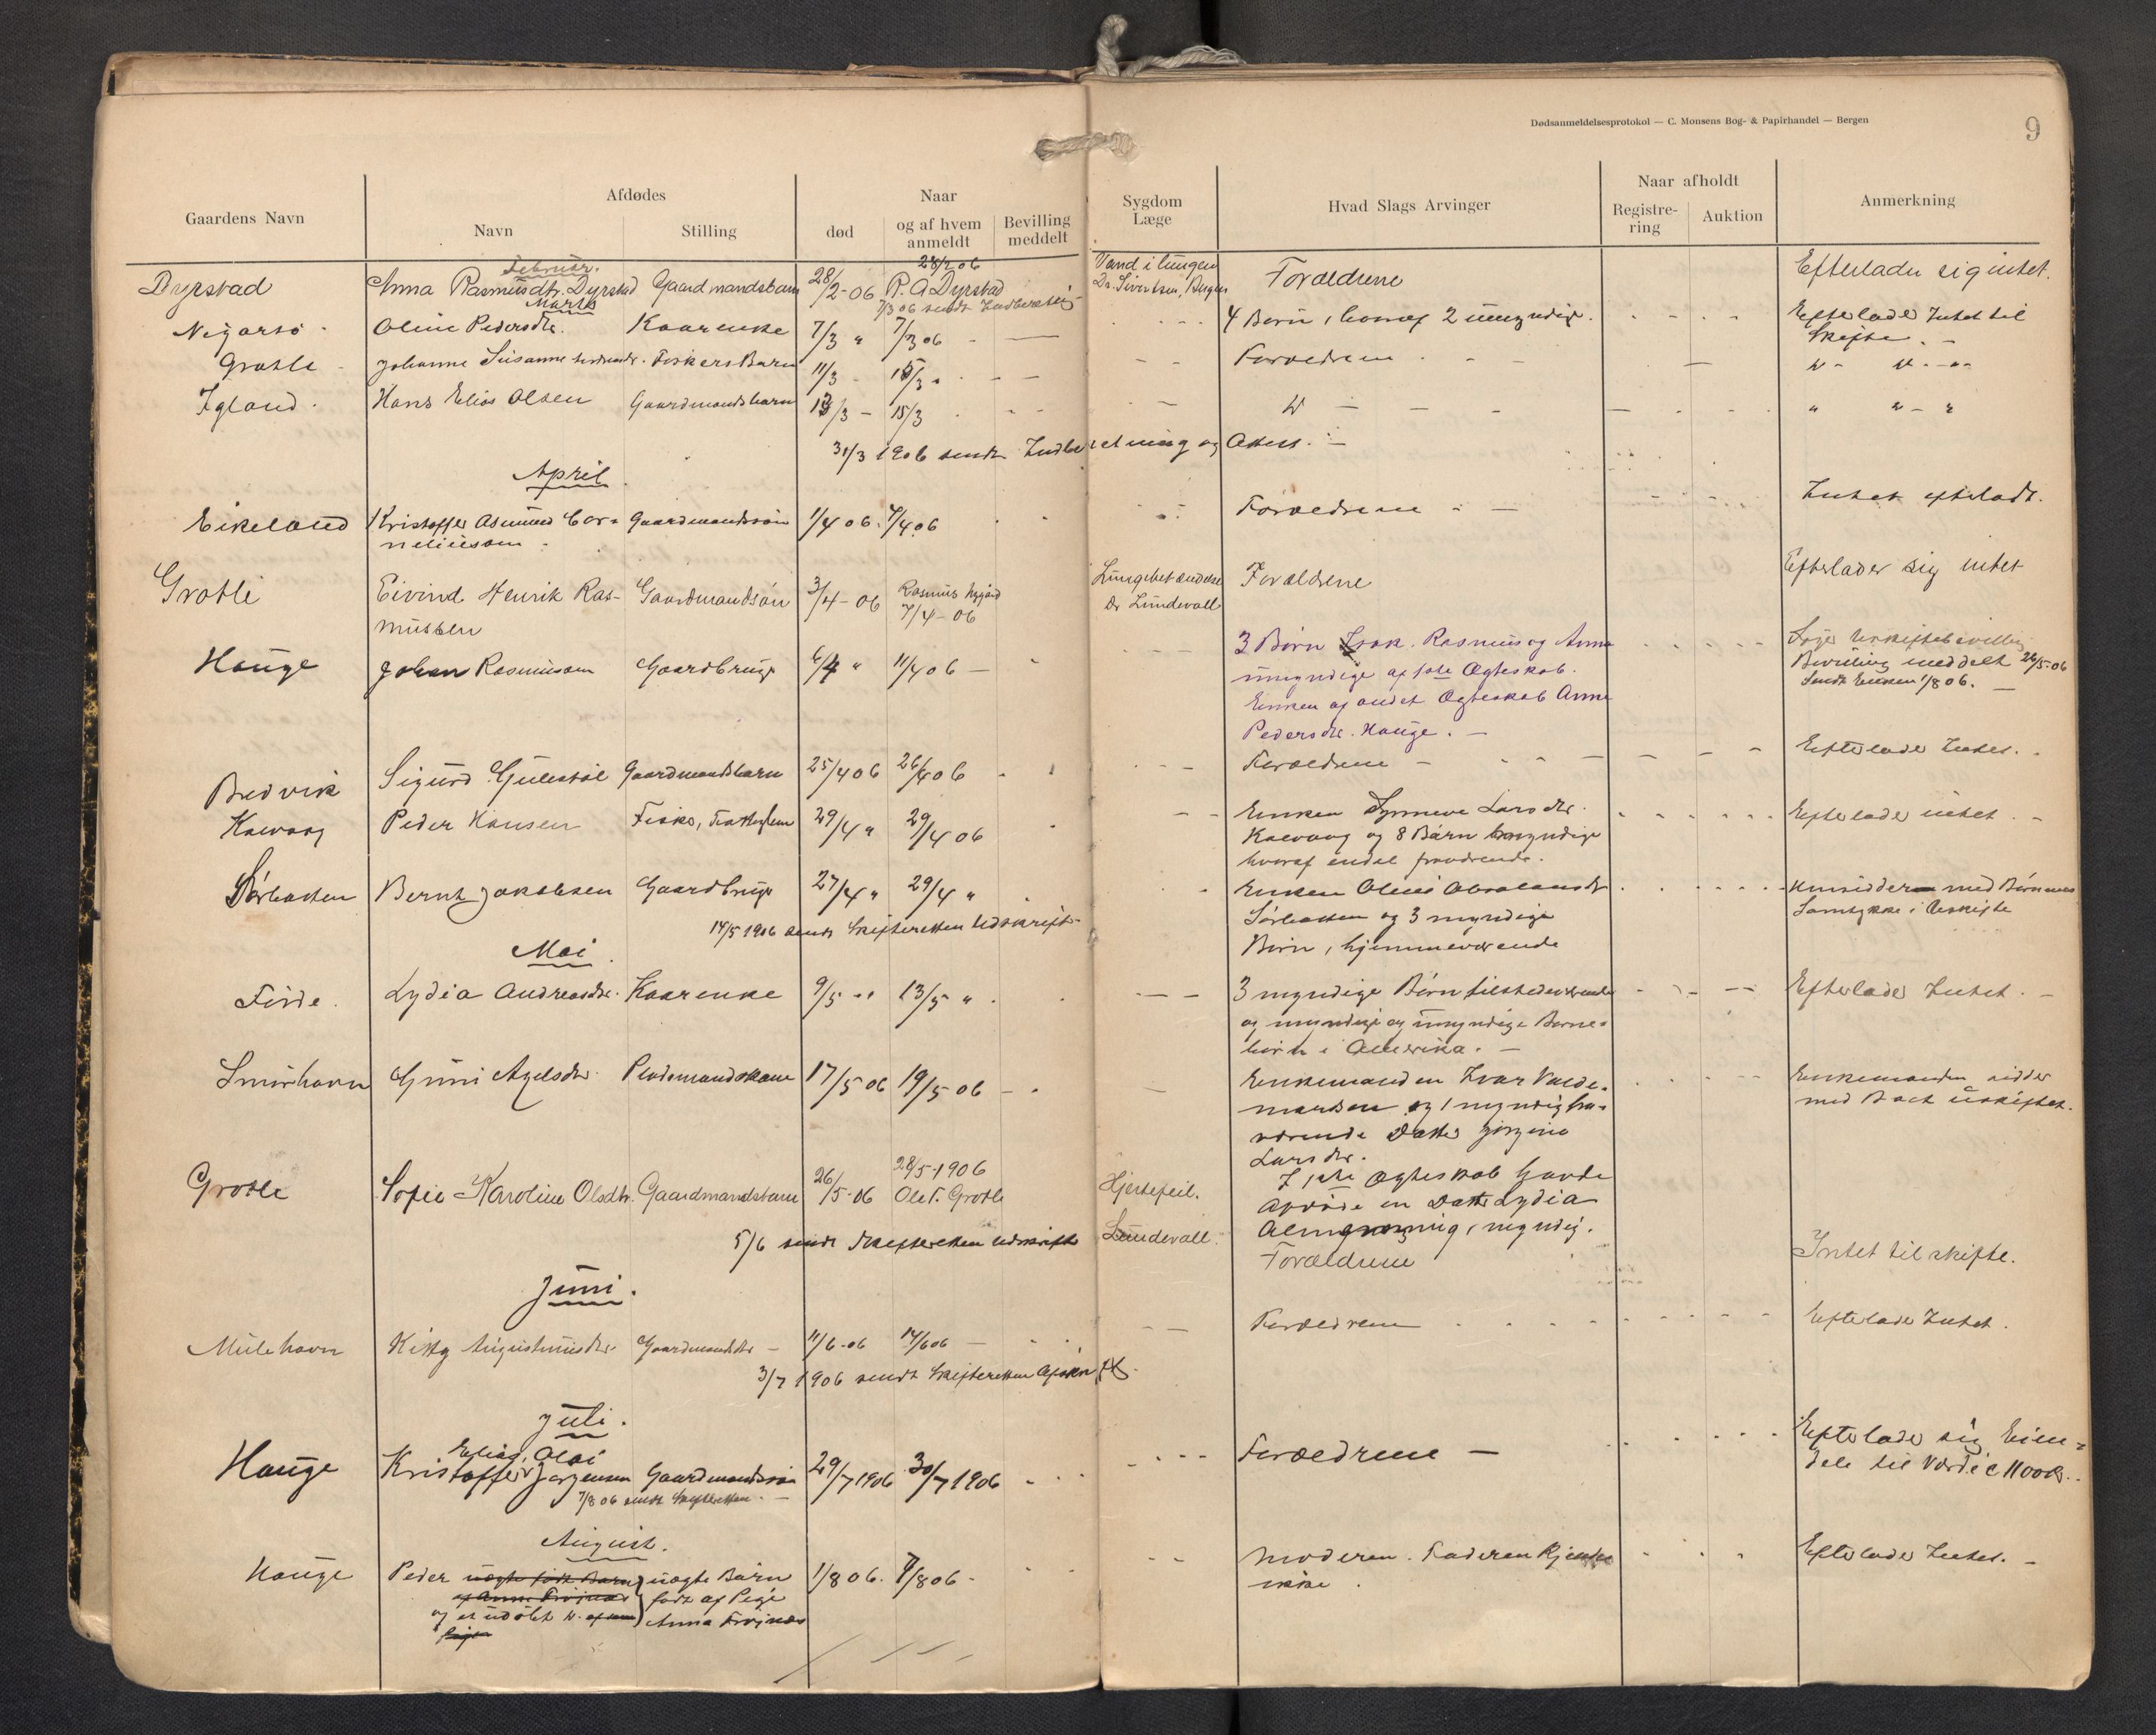 Dødsanmeldelsesprotokol — C. Monsens Bog- & Papirhandel — Bergen
9
Gaardens Navn
Afdødes
Navn
Stilling
Naar
død
og af hvem anmeldt
Bevilling meddelt
Sygdom
Læge
Hvad Slags Arvinger
Naar afholdt
Registre-
ring
Auktion
Anmerkning
Februar.
Dyrstad Anna Rasmusdtr. Dyrstad Gaardmandsbarn 28/2-06 28/2 06 R. A Dyrstad Vand i lungen Dr. Sivertsen, Bergen Forældrene Efterlader sig intet.
7/3 06 sendt Indberetnig
Marts
Oline Pedersdtr. Kaarenke 7/3 " 7/3 06 - — 4 Børn, hvoraf 2 umyndige. Efterlader Intet til
Skifte. -
Grotle Johanne Susanne Fiskers Barn 11/3 15/3 Forældrene
Igland. Hans Elias Olsen Gaardmandsbarn 13/3 - 15/3 " — — - " " - "
31/3 1906 sendt Indberetning og Attest. -
April
Eikeland Kristoffer Asmund Cor= Gaardmandssøn 1/4 06. 7/4 06 Forældrene - — Intet efterladt.
neliusson -
Grotle Eivind Henrik Ras- Gaardmandsøn 3/4-06 Rasmus Nygård 7/4-06 Lungebetændelse Dr Lundevall Forældrene Efterlader sig intet
mussen
Hauge Johan Rasmusson Gaardbruger 6/4 " 11/4 06 — 3 Børn Isak. Rasmus og Anna
umyndige af 1ste Ægteskab.
Enken af andet Ægteskab Anne
Pedersdtr. Hauge. -
Bevilling meddelt 26/5-06
Sendt Enken 1/8 06. —
Bredvik Sigurd Gulestøl Gaardmandsbarn 25/4 06 26/4 06 Forældrene - Efterlader Intet. .
Kalvaag Peder Hansen Fisker, 29/4 " 29/4 06 Enken Synneve Larsdtr.
Kalvaag og 8 Børn myndige
hvoraf endel fraværende.
Efterlader intet. -
Sørbotten Bernt Jakobsen Gaardbruger 27/4 " 29/4 " Enken Oline Absalonsdtr
Sørbotten og 3 myndige
Børn, hjemmeværende
Enken sidder med Børnenes
Samtykke i Uskifte
14/5 1906 sendt Skifteretten Udskrift-
Mai.
Førde. Lydia Andreasdtr. Kaarenke 9/5 - " 13/5 " . 3 myndige Børn tilstedeværende
og myndige og umyndige Børne=
børn i Amerika. -
Efterlader Intet. -
Smørhavn Guni Axelsdtr. Pladsmandskone 17/5 06 19/5 06 - Enkemanden Ivar Valde=
marsen og 1 myndig fra=
værende Datter Jørgine
Larsdtr.
Enkemanden sidder
med Boet uskiftet.
I 1ste Ægteskab havde
Afdøde en Datter Lydia
Almenning, myndig.
Grotle Sofie Karoline Olsdtr. Gaardmandsbarn 26/5-06 28/5-1906 Ole T. Grotle Hjertefeil. Lundevall. Forældrene Intet til skifte.
5/6 sendt Skifteretten Udskrift
Juni.
Mulehavn Kitty Augustinusdtr. Gaardmandsdtr - 11/6-06 14/6 06 — Forældrene Efterlader Intet.
3/7 1906 sendt Skifteretten Afskrift.
Juli.
Elias, Olai
Hauge Kristoffer Jørgensen Gaardmandssøn 29/7 1906 30/7 1906 Forældrene — Efterlader sig Eien=
dele til Værdi c 1100 Kr.
7/8 06 sendt Skifteretten. -
August.
Hauge Peder uægte født Barn uægte Barn 1/8 06. 7/8 06 - Moderen. Faderen Kjendes
ikke. Efterlader Intet. -
af Anna Frøjnæs født af Pige
og et udøbt Anna Frøjnæs
Pige